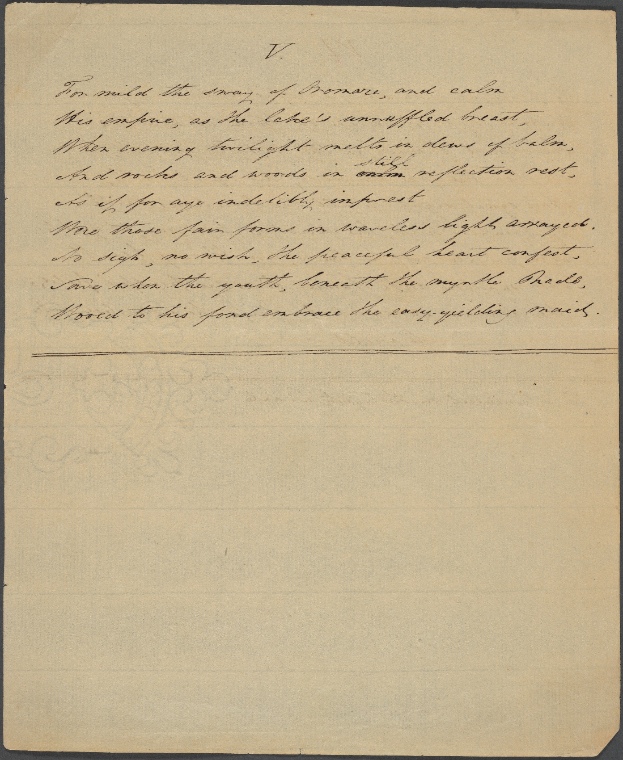 V.
For mild the sway of Promare, and calm
His empire, as the lake's unruffled breast,
When evening twilight melts in dews of balm,
And rocks and woods in calm still reflection rest,
As if for aye indelibly imprest
Were those fair forms in waveless light arrayed.
No sigh, no wish, the peaceful heart confest,
Save when the youth, beneath the myrtle shade,
Wooed to his fond embrace the easy-yielding maid.